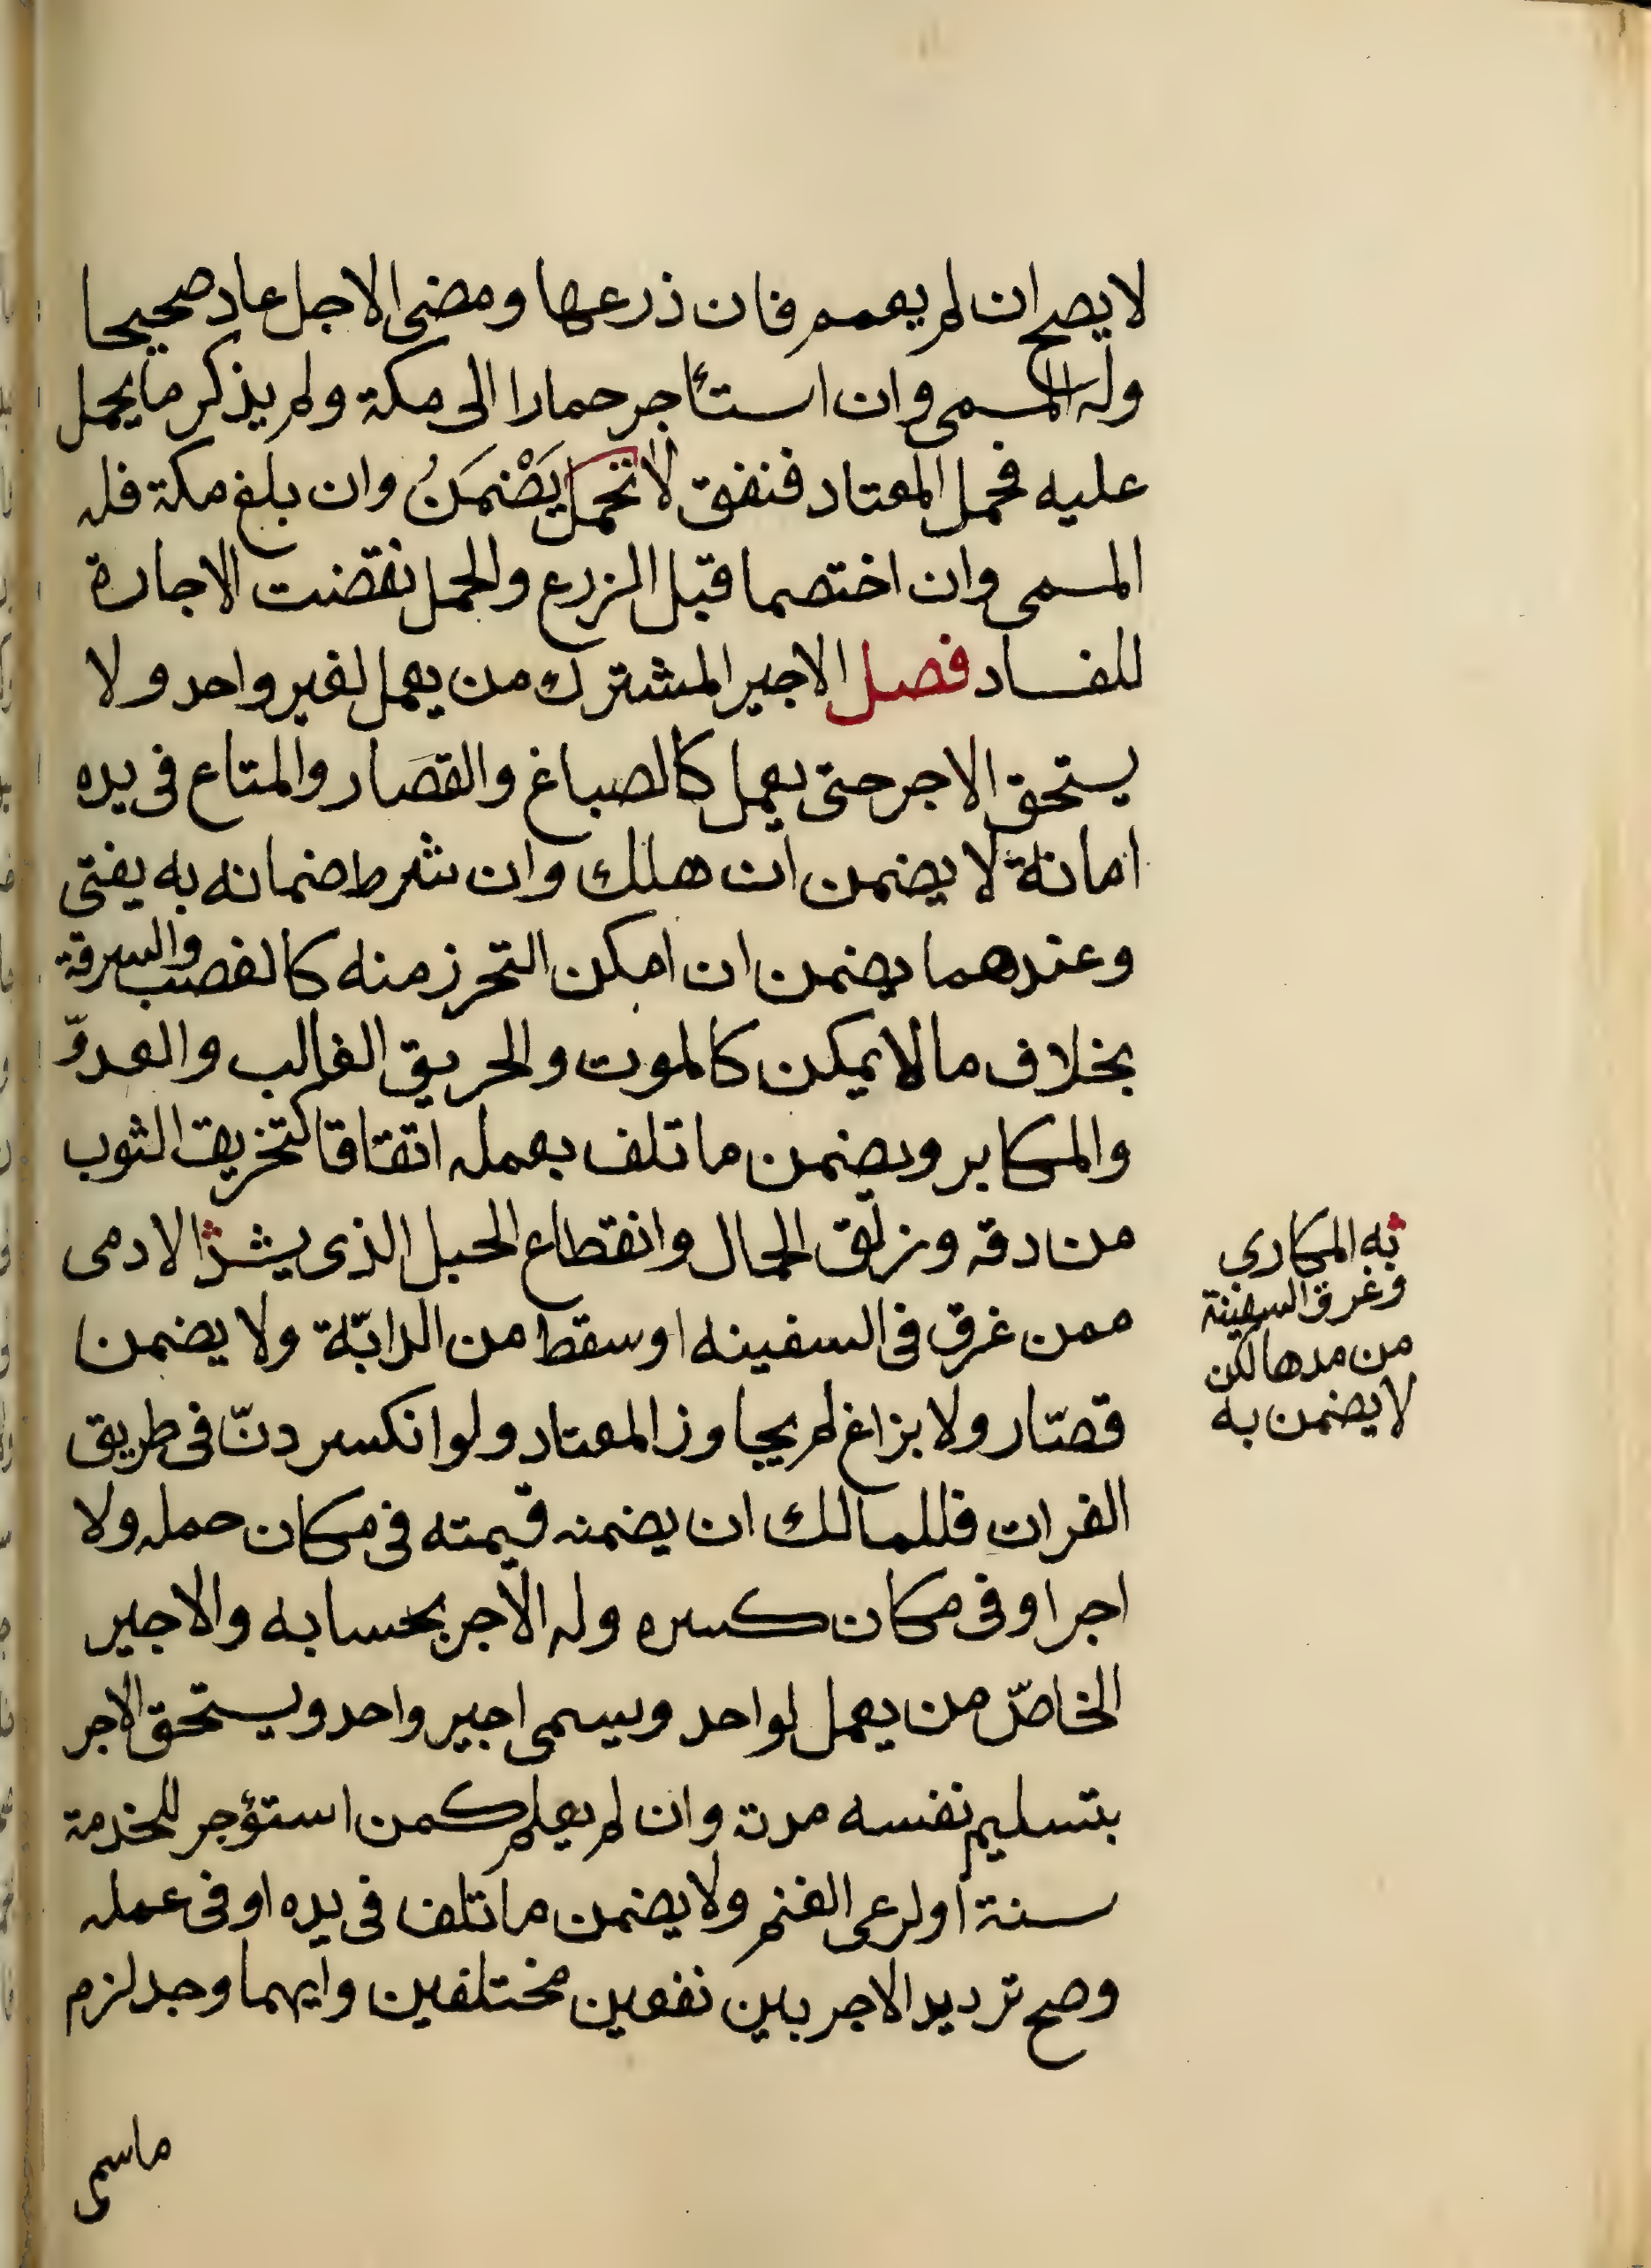 لا يصح ان لم يعمم فان زرعها ومضى الاجل عاد صحيحا
وله المسمى وان استأجر حمارا الى مكة ولم يذكر ما يحمل
عليه فحمل المعتاد فنفق لا يَضْمَنُ وان بلغ مكة فله
المسمى وان اختصما قبل الزرع والحمل نقضت الاجارة
للفساد فصل الاجير المشترك من يعمل لغير واحد ولا
يستحق الاجر حتى يعمل كالصباغ والقصَار والمتاع فى يده
امانة لا يضمن ان هلك وان شرط ضمانه به يفتى
وعندهما يضمن ان امكن التحرز منه كالغصب والسرقة
بخلاف مالا يمكن كالموت والحريق الغالب والعدوّ
والمكابر ويضمن ما تلف بعمله اتفاقا كتخريق الثوب
من دقه وزلق الحمال وانقطاع الحبل الذى يشد الادمى
ممن غرق فى السفينه او سقط من الدابّة ولا يضمن
قصّار ولا بزاغ لم يجاوز المعتاد ولو انكسر دنّ فى طريق
الفرات فللمالك ان يضمنه قيمته فى مكان حمله ولا
اجر او فى مكان كسره وله الاجر بحسابه والاجير
الخاصّ من يعمل لواحد ويسمى اجير واحد ويستحق الاجر
بتسليم نفسه مدة وان لم يعلم كمن استؤجر للخدمة
سنة او لرعى الغنم ولا يضمن ما تلف فى يده او فى عمله
وصح ترديد الاجر بين نفعين مختلفين وايهما وجد لزم
ماسمى
به المكارى
وغرق السفينة
من مدها لكن
لا يضمن به